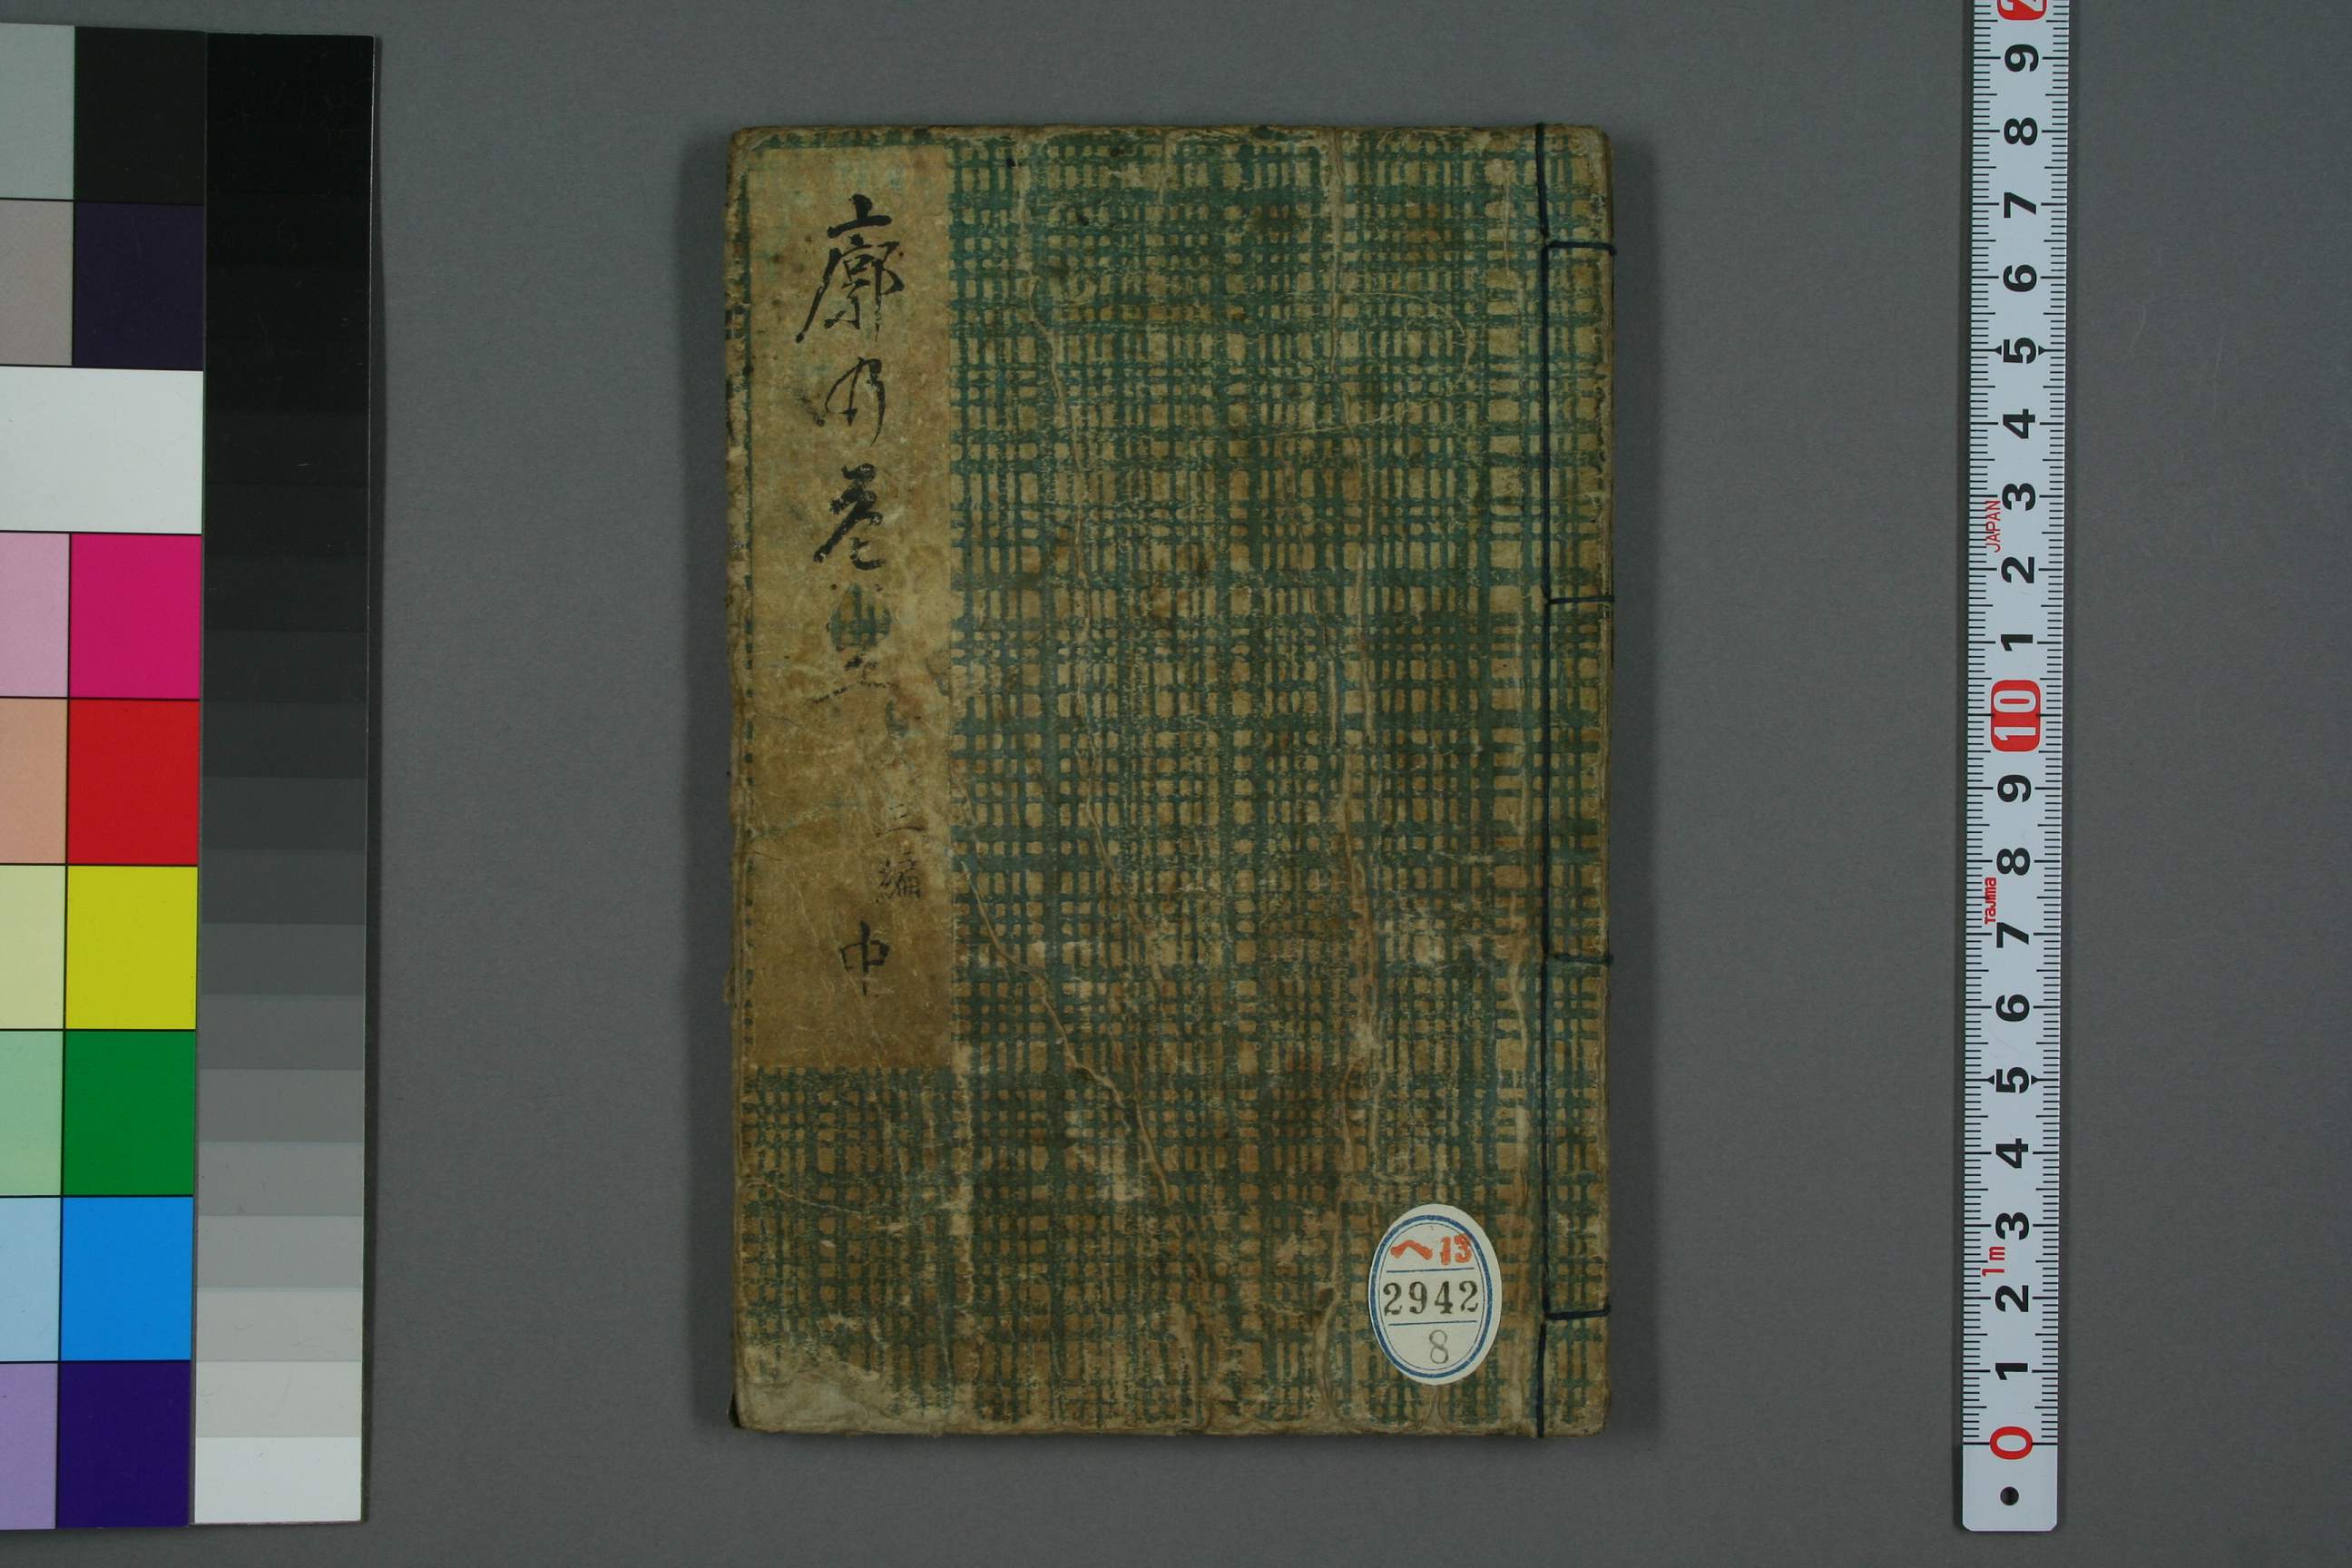 廓の花笠
三編
中
ヘ13
2942
8
2
9
8
7
6
5
4
3
2
1
10
9
8
7
6
5
4
3
2
1
0
JAPAN
Tajima
1m